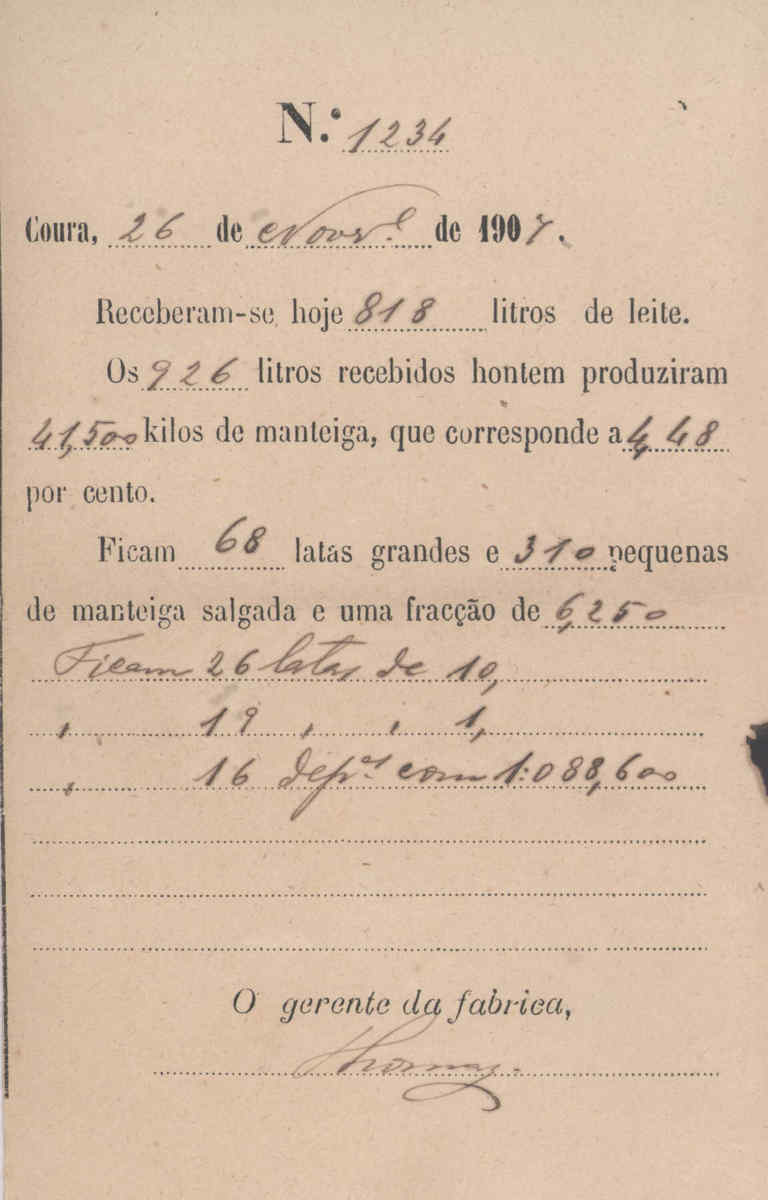 N.º 1234
Coura, 26 de Novr.º de 1907.
Receberam-se hoje 818 litros de leite.
Os 926 litros recebidos hontem produziram
41,500 kilos de manteiga, que corresponde a 4,48
por cento.
Ficam 68 latas grandes e 310 pequenas
de manteiga salgada e uma fracção de 6,250
Ficam 26 latas de 10,
, 19 , , 1,
, 16 dep.os com 1:088,600
O gerente da fabrica,
Thomaz.